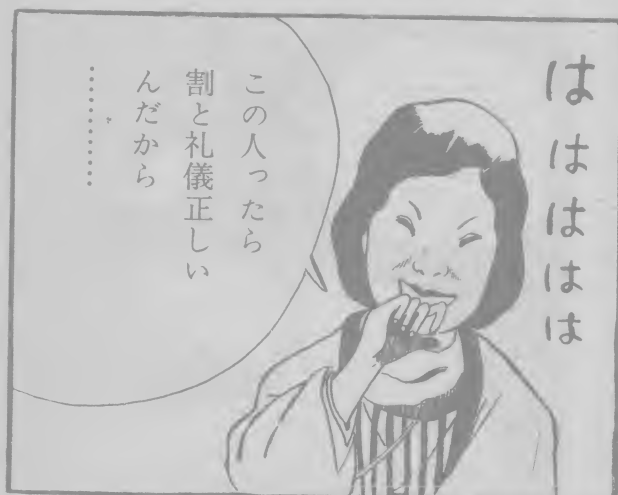 ははははは
この人ったら
割と礼儀正しい
んだから
…………